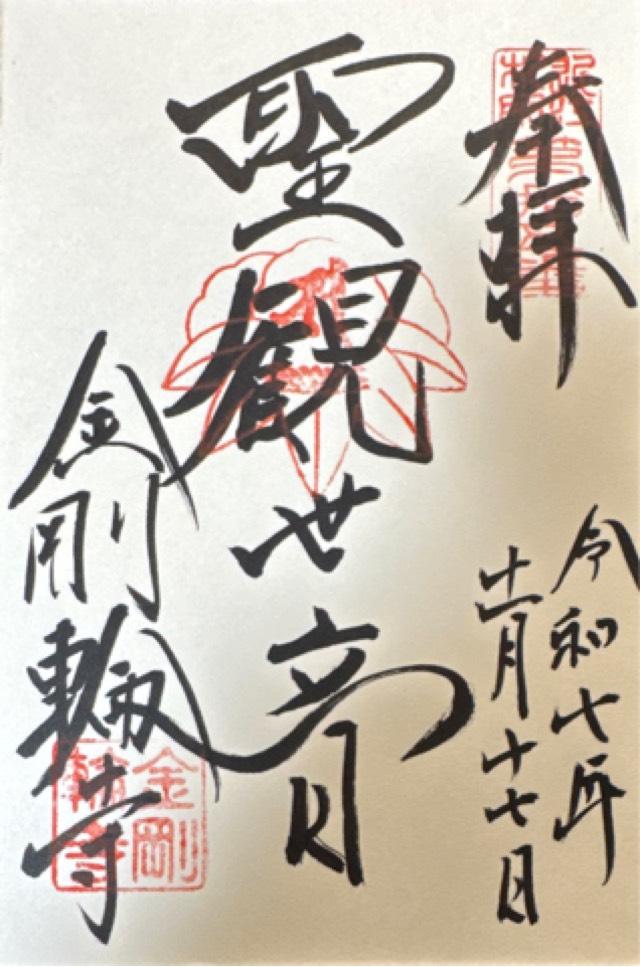 奉拝
令和七年
十一月十七日
聖観世音
金剛輪寺
金剛
輪寺